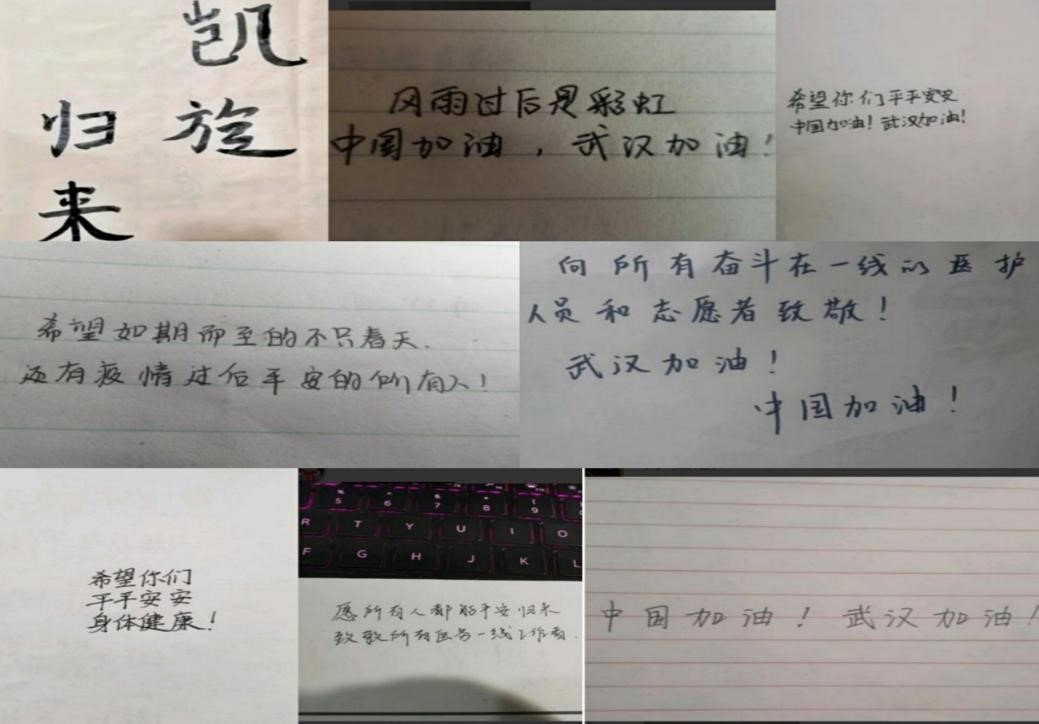 凯旋
归来
风雨过后是彩虹
中国加油，武汉加油！
希望你们平平安安
中国加油！武汉加油！
希望如期而至的不只春天.
还有疫情过后平安的所有人！
向所有奋斗在一线的医护
人员和志愿者致敬！
武汉加油！
中国加油！
希望你们
平平安安
身体健康！
% ^ & * (
5 6 7 8 9
R T Y U I O
F G H J K L
愿所有人都能平安归来
致敬所有医务一线工作者.
中国加油！武汉加油！